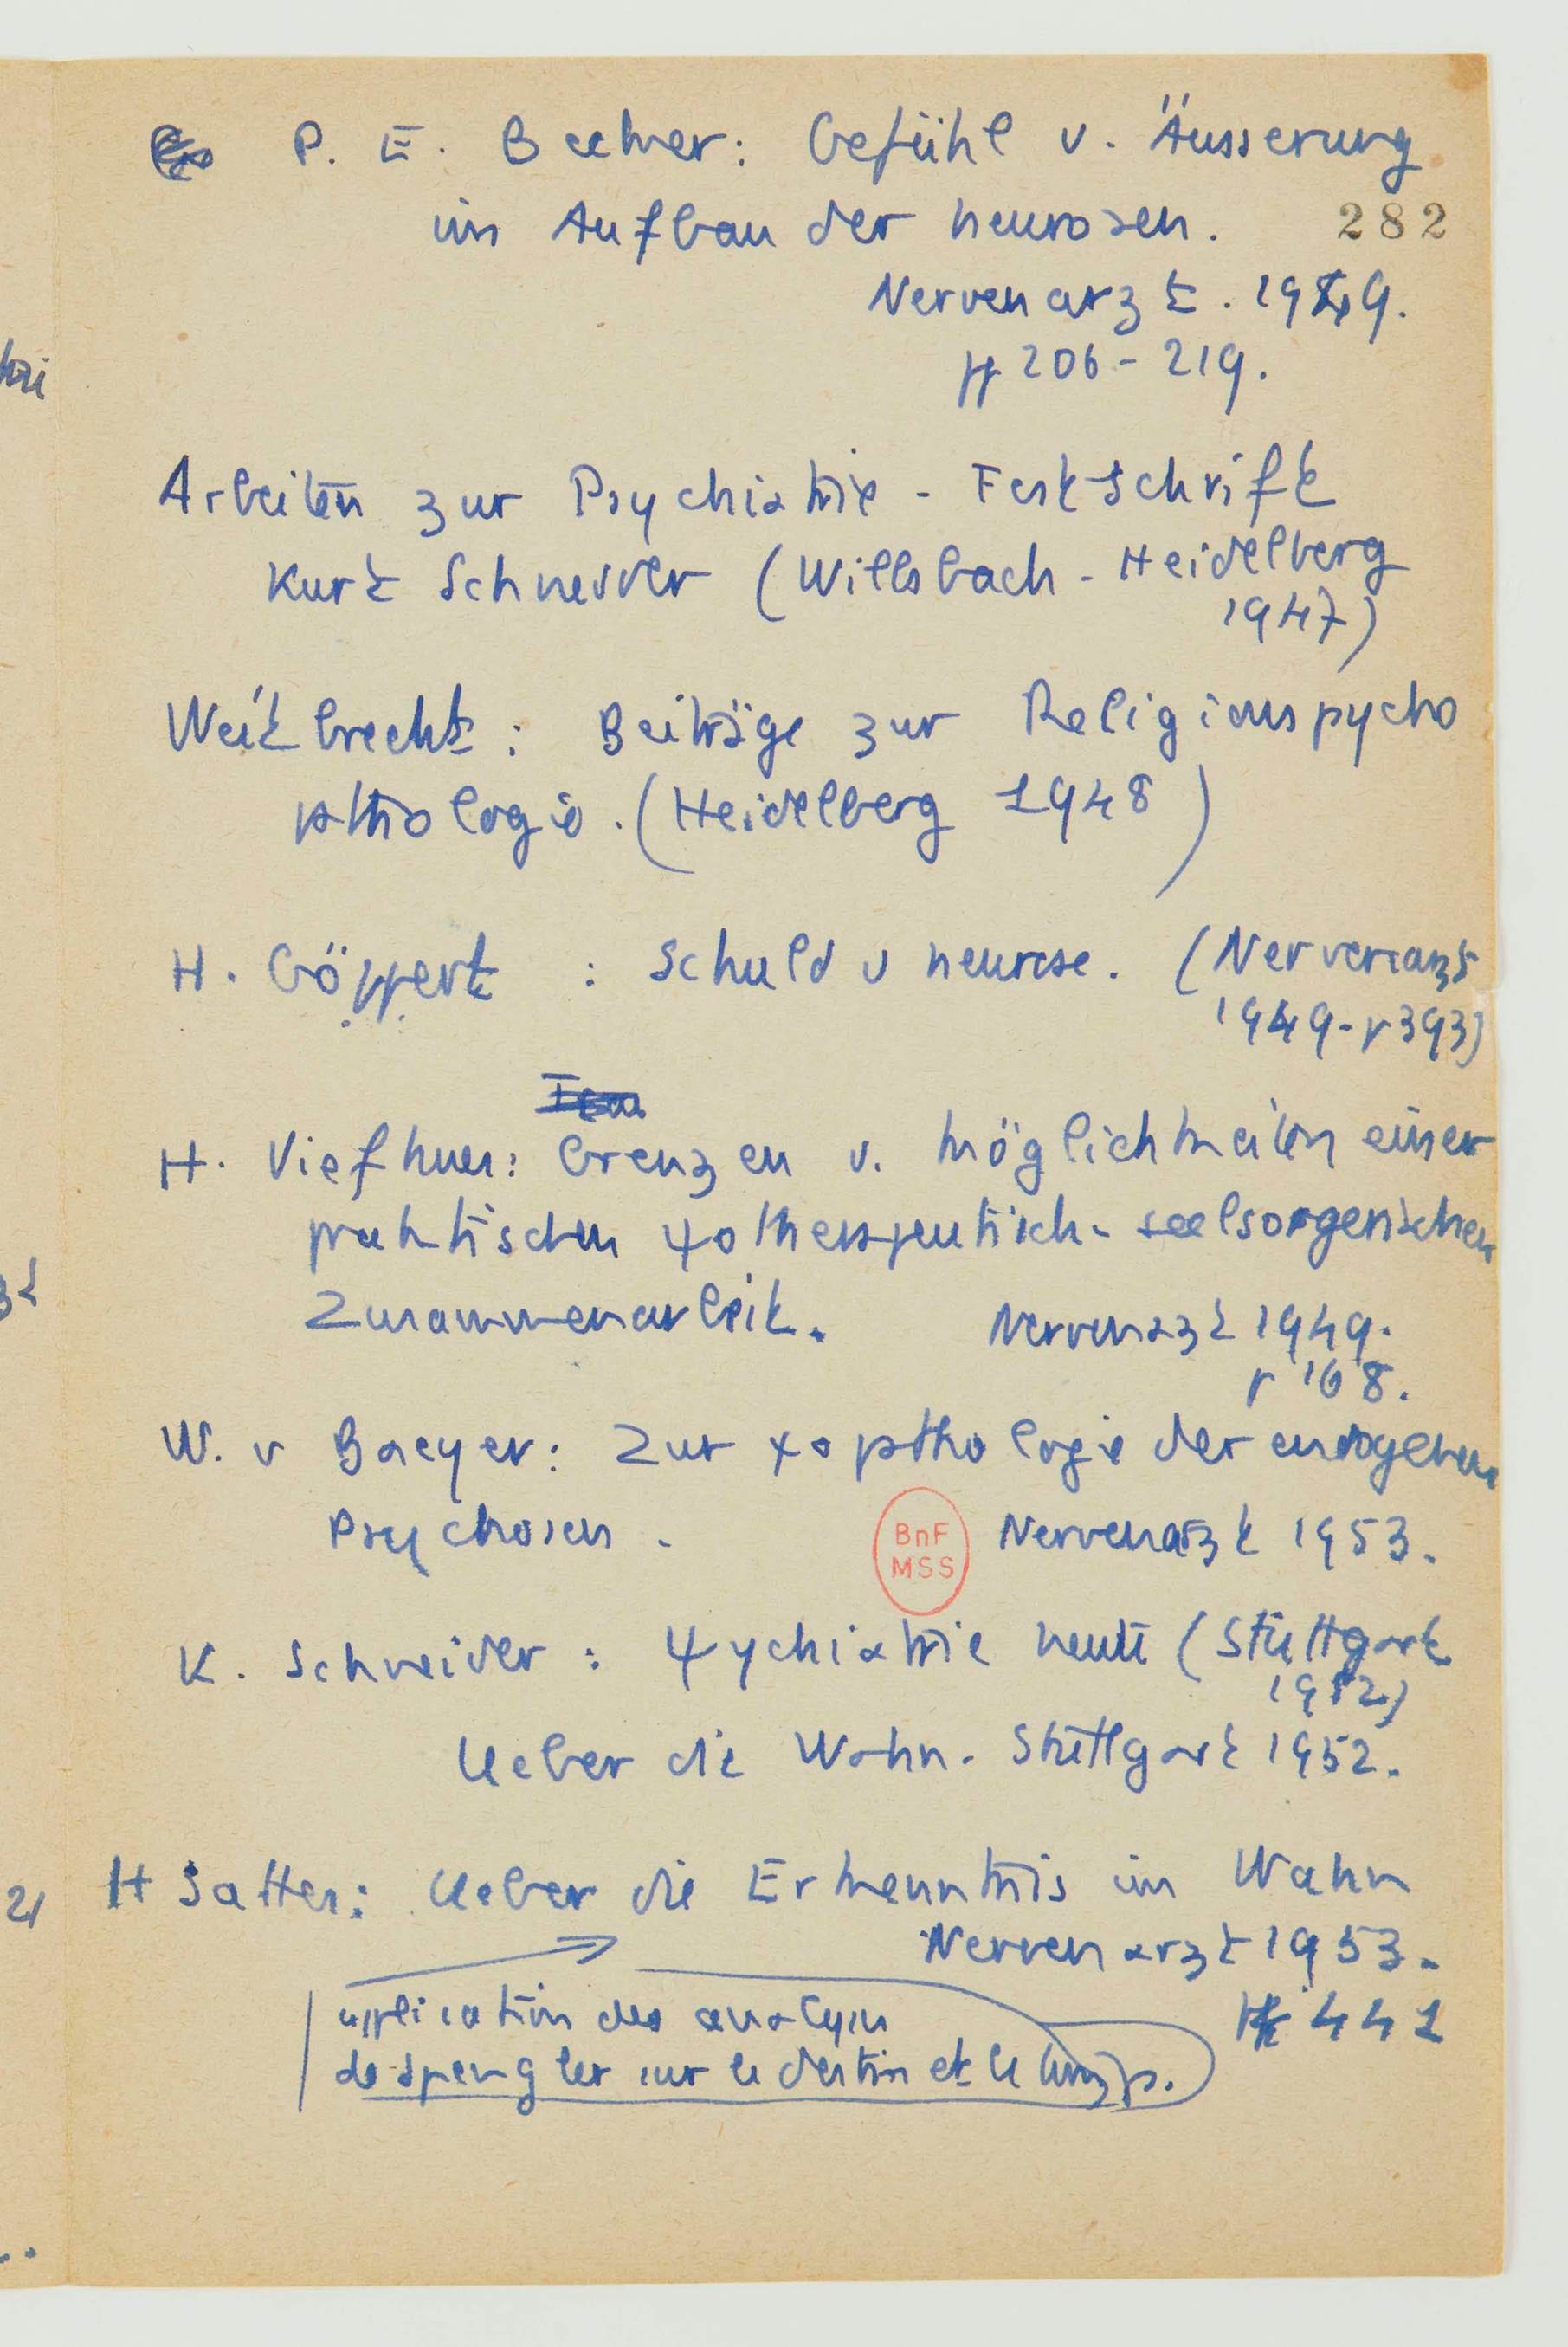 P. E. Becker: Gefühl u. Äusserung
im Aufbau der neurosen.
282
Nervenarzt. 1949.
pp 206-219.
Arbeiten zur Psychiatrie - Festschrift
Kurt Schneider (Willsbach - Heidelberg
1947)
Weitbrecht : Beiträge zur Religionspycho
pathologie. (Heidelberg 1948)
H. Göppert : Schuld u neurose. (Nervenarzt
1949 - p 393)
H. Viefhues: Grenzen u. möglichkeiten einer
praktischen ψotherapeutisch - seelsorgerischen
Zusammenarbeit. Nervenarzt 1949.
p 168.
W. v Baeyer: Zur ψopathologie der endogenen
Psychosen. Nervenarzt 1953.
BnF
MSS
K. Schneider : ψychiatrie heute (Stuttgart
1952)
Ueber die Wahn. Stuttgart 1952.
H Sattes: Ueber die Erkenntnis im Wahn
Nervenarzt 1953.
p 441
application des analyses
de Spengler sur le destin et le temps.